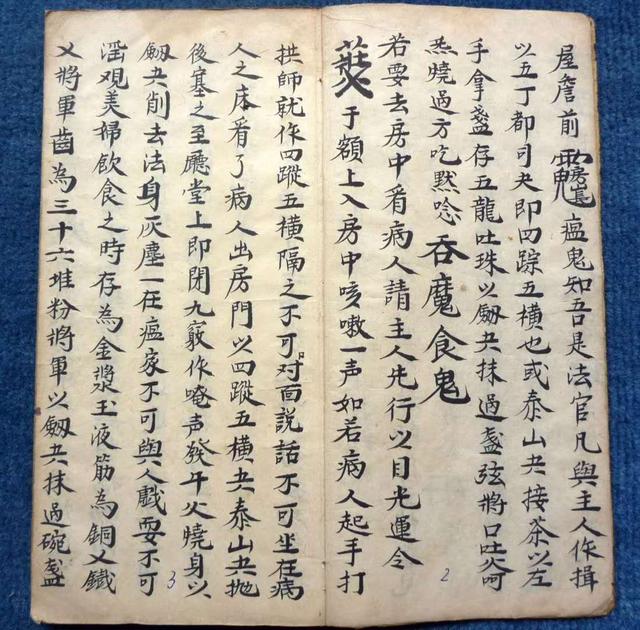 屋詹前　瘟鬼如吾是法官凡與主人作揖
以五丁都司夬即四踪五横也或泰山夬接茶以左
手拿盞存五龍吐珠以劒夬抹過盞弦將口吐火呵
炁燒過方吃默唸吞魔食鬼
若要去房中看病人請主人先行以目光運令
于額上入房中咳嗽一声如若病人起手打
拱師就作四蹤五横隔之不可对面説話不可坐在病
人之床看了病人出房門以四蹤五横夬泰山夬抛
後塞之至廳堂上即閉九竅作唵声發午火燒身以
劒夬削去法身灰塵一在瘟家不可與人戲耍不可
淫观美婦飲食之時存為金漿玉液筋為銅乂鐵
乂將軍齒為三十六堆粉將軍以劒夬抹過碗盞
2
3